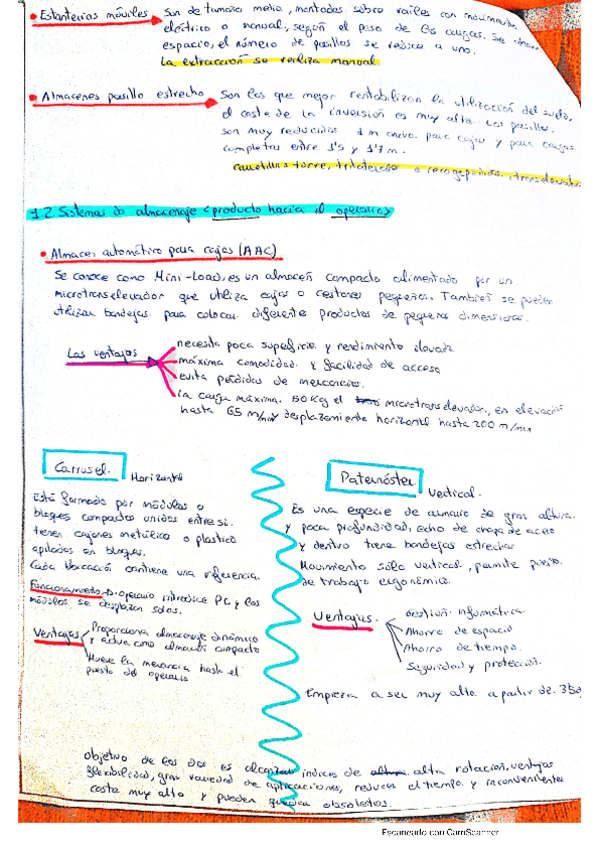 • Estanterias móviles → Son de tamaño medio, montados sobre railes con movimiento
eléctrico o manual, según el peso de las cargas. Se ahorra
espacio, el número de pasillos se reduce a uno.
La extracción se realiza manual
• Almacenes pasillo estrecho → Son los que mejor rentabilizan la utilización del suelo,
el coste de la inversión es muy alta. Los pasillos
son muy reducidos 1 m ancho. para cajas y para cargas
completas entre 1'5 y 1'7 m.
carretillas torre, trilaterales o recogepedidos, transelevador
1.2 Sistemas de almacenaje <producto hacia el operario>
• Almacén automático para cajas (AAC)
Se conoce como Mini-Load, es un almacén compacto alimentado por un
microtranselevador que utiliza cajas o cestones pequeños. También se pueden
utilizar bandejas para colocar diferente productos de pequeña dimensiones.
Las ventajas
necesita poca superficie y rendimiento elevado
máxima comodidad y facilidad de acceso
evita pérdidas de mercancías.
la carga máxima. 50 Kg el microtranselevador, en elevación
hasta 65 m/min y desplazamiento horizontal hasta 200 m/min
Carrusel. Horizontal
Está formado por módulos o
bloques compactos unidos entre si.
tienen cajones metálico o plastico
apilados en bloques.
Cada ubicación contiene una referencia.
Funcionamiento → operario introduce PC y los
módulos se desplazan solos.
Ventajas
Proporciona almacenaje dinámico
y actua como almacén compacto
Mueve la mercancia hasta el
puesto del operario
Paternóster Vertical.
Es una especie de armario de gran altura
y poca profundidad, echo de chapa de acero
y dentro tiene bandejas estrechas
Movimiento sólo vertical, permite puesto
de trabajo ergonómico.
Ventajas.
Gestión informática.
Ahorro de espacio
Ahorro de tiempo.
Seguridad y protección.
Empieza a ser muy alto a partir de
objetivo de los dos es alcanzar indices de alta rotación, ventajas
flexibilidad, gran variedad de aplicaciones, reduce el tiempo y inconveniente
coste muy alto y pueden quedar obsoletos.
Escaneado con CamScanner